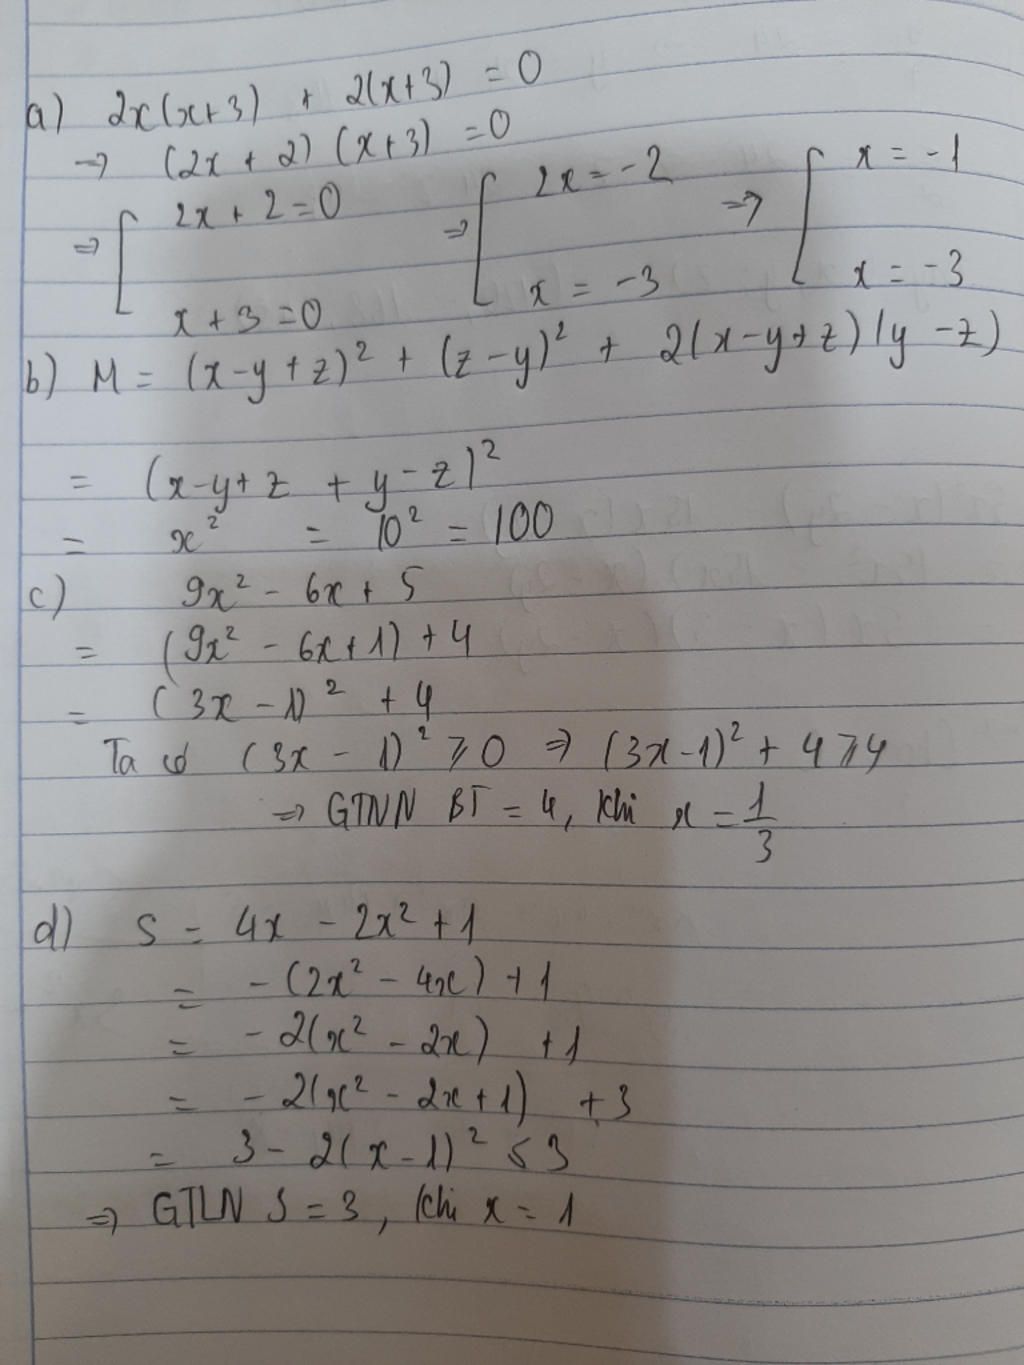 a) 2x(x+3) + 2(x+3) = 0
→ (2x + 2) (x+3) = 0
⇒ [ 2x + 2 = 0 ⇒ [ 2x = -2 ⇒ [ x = -1
x + 3 = 0 x = -3 x = -3
b) M = (x-y+z)² + (z-y)² + 2(x-y+z)(y-z)
= (x-y+z + y-z)²
= x² = 10² = 100
c) 9x² - 6x + 5
= (9x² - 6x+1) + 4
= (3x - 1)² + 4
Ta có (3x - 1)² ⩾ 0 ⇒ (3x-1)² + 4 ⩾ 4
⇒ GTNN BT = 4, khi x = 1/3
d) S = 4x - 2x² + 1
= -(2x² - 4x) + 1
= -2(x² - 2x) + 1
= -2(x² - 2x + 1) + 3
= 3 - 2(x-1)² ≤ 3
⇒ GTLN S = 3, khi x = 1